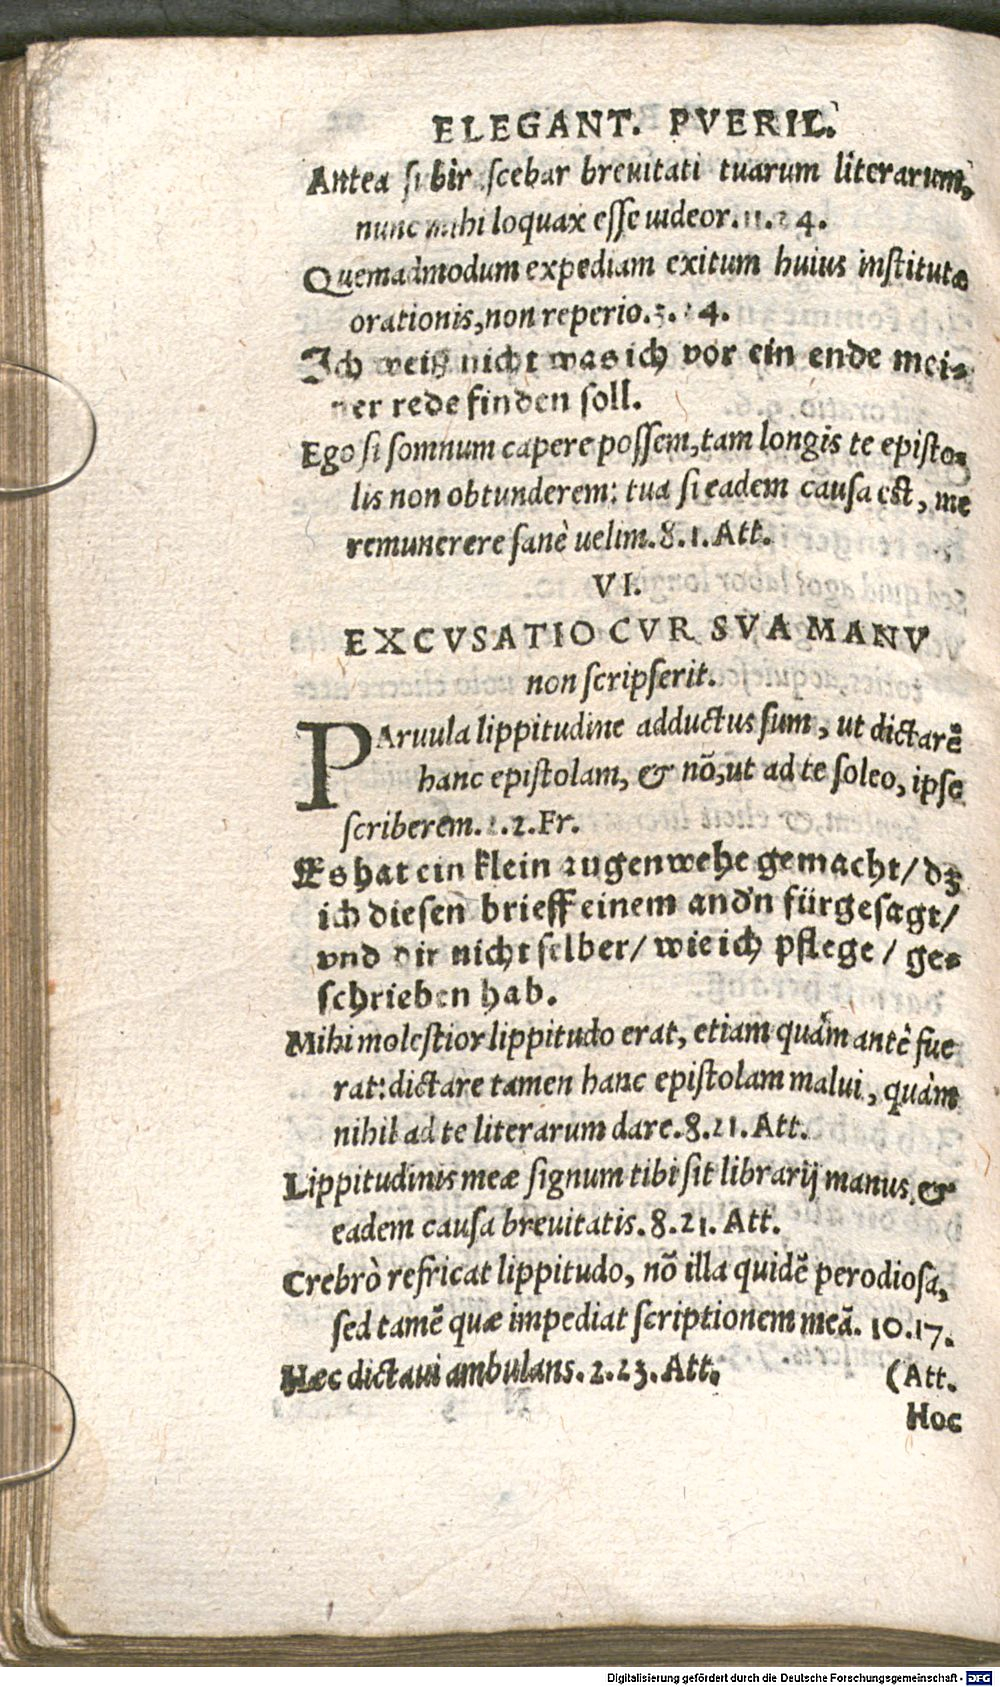 ELEGANT. PVERIL.
Antea subirascebar breuitati tuarum literarum,
nunc mihi loquax esse uideor. 11. 24.
Quemadmodum expediam exitum huius institutæ
orationis, non reperio. 3. 4.
Ich weiß nicht was ich vor ein ende mei-
ner rede finden soll.
Ego si somnum capere possem, tam longis te episto-
lis non obtunderem: tua si eadem causa est, me
remunerere sanè uelim. 8. 1. Att.
VI.
EXCVSATIO CVR SVA MANV
non scripserit.
PAruula lippitudine adductus sum, ut dictarē
hanc epistolam, & nō, ut ad te soleo, ipse
scriberem. 2. Fr.
Es hat ein klein augenwehe gemacht/ dz
ich diesen brieff einem andn fürgesagt/
vnd dir nicht selber/ wie ich pflege/ ge-
schrieben hab.
Mihi molestior lippitudo erat, etiam quàm antè fue
rat: dictare tamen hanc epistolam malui, quàm
nihil ad te literarum dare. 8. 21. Att.
Lippitudinis meæ signum tibi sit librarij manus, &
eadem causa breuitatis. 8. 21. Att.
Crebrò refricat lippitudo, nō illa quidē perodiosa,
sed tamē quæ impediat scriptionem meā. 10. 17.
Hæc dictaui ambulans. 2. 23. Att. (Att.
Hoc
Digitalisierung gefördert durch die Deutsche Forschungsgemeinschaft - DFG